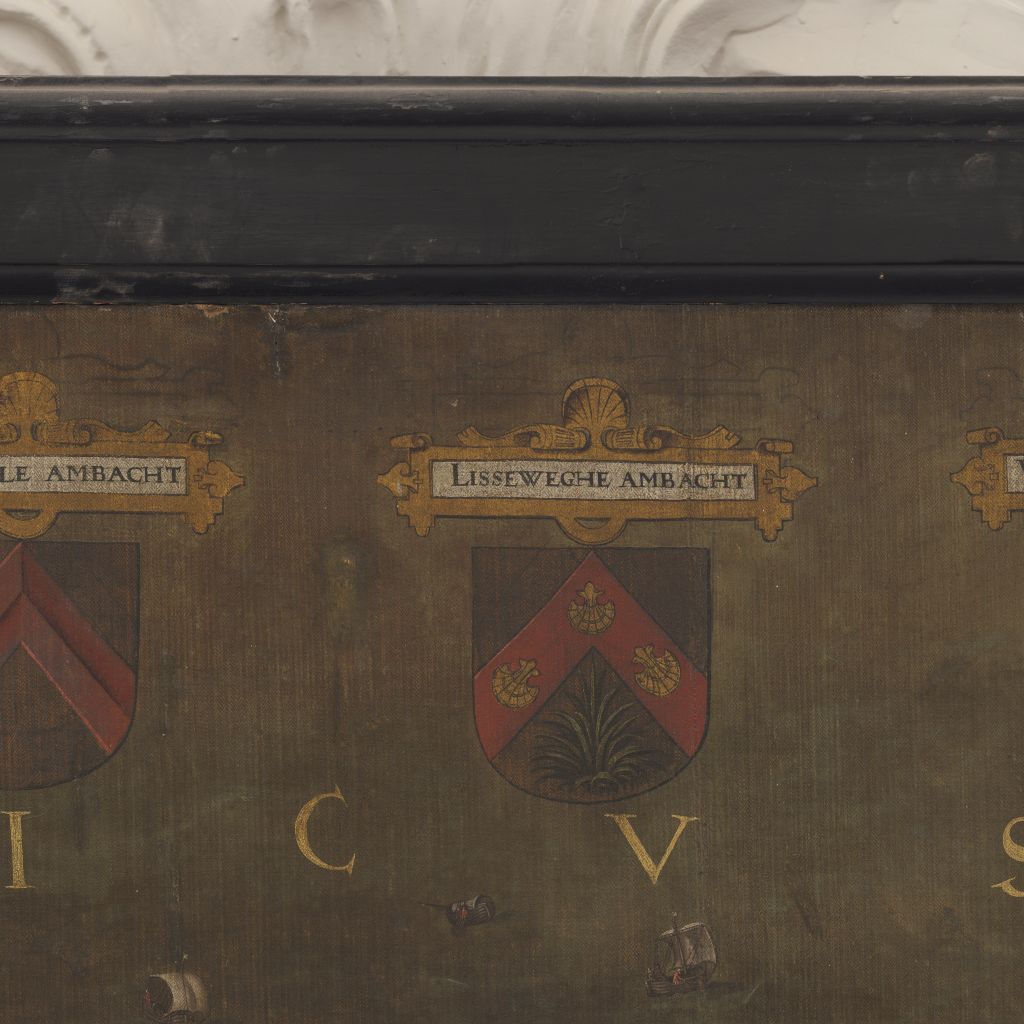 LE AMBACHT
LISSEWEGHE AMBACHT
I C V S